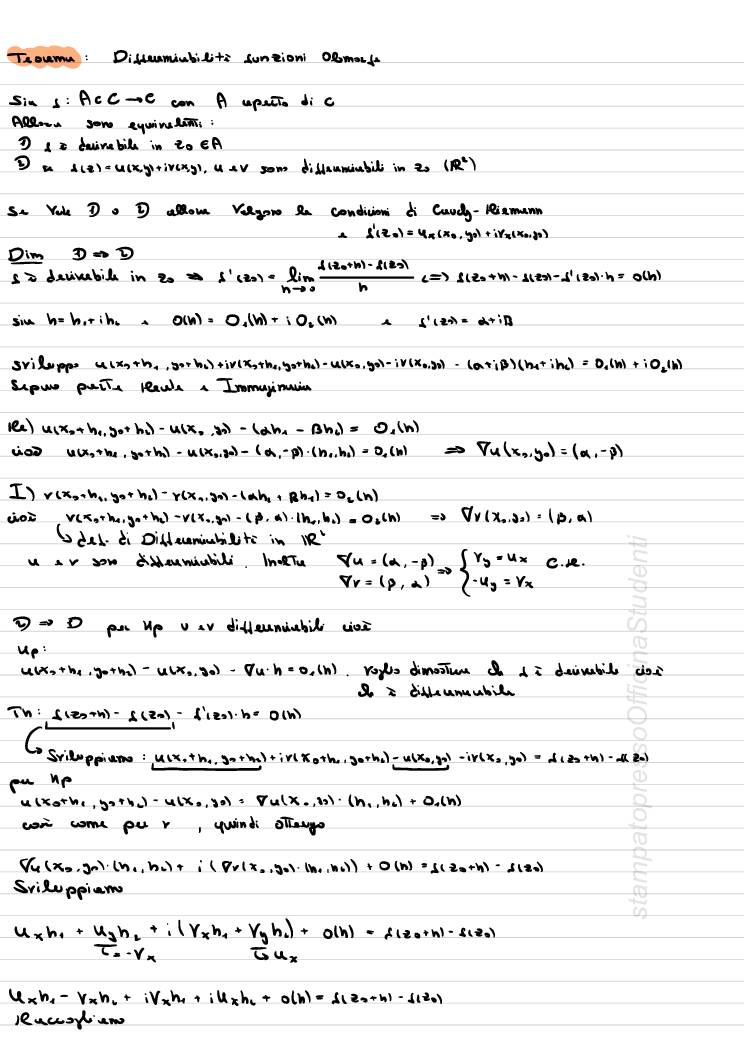 Teorema: Differenziabilità funzioni Olomorfe
Sia f: A⊂C→C con A aperto di C
Allora sono equivalenti:
① f è derivabile in z₀ ∈A
② se f(z)=u(x,y)+iv(x,y), u e v sono differenziabili in z₀ (ℝ²)
Se vale ① o ② allora valgono le condizioni di Cauchy-Riemann
e f'(z₀)=uₓ(x₀,y₀)+ivₓ(x₀,y₀)
Dim ① ⇒ ②
f è derivabile in z₀ ⇒ f'(z₀)= lim h→0 (f(z₀+h)-f(z₀))/h <=> f(z₀+h)-f(z₀)-f'(z₀)·h = o(h)
sia h= h₁+ih₂ e o(h) = o₁(h)+ i o₂(h) e f'(z₀)= α+iβ
sviluppo u(x₀+h₁,y₀+h₂)+iv(x₀+h₁,y₀+h₂)-u(x₀,y₀)-iv(x₀,y₀) - (α+iβ)(h₁+ih₂) = o₁(h) + i o₂(h)
Separo parte Reale e Immaginaria
Re) u(x₀+h₁,y₀+h₂)-u(x₀,y₀)-(αh₁ - βh₂) = o₁(h)
cioè u(x₀+h₁,y₀+h₂)-u(x₀,y₀)-(α,-β)·(h₁,h₂) = o₁(h) ⇒ ∇u(x₀,y₀)=(α,-β)
I) v(x₀+h₁,y₀+h₂)-v(x₀,y₀)-(αh₂ + βh₁) = o₂(h)
cioè v(x₀+h₁,y₀+h₂)-v(x₀,y₀)-(β,α)·(h₁,h₂) = o₂(h) ⇒ ∇v(x₀,y₀)=(β,α)
↳ def. di Differenziabilità in ℝ²
u e v sono differenziabili. Inoltre ∇u = (α,-β) ∇v = (β,α) ⇒ { v_y = uₓ -u_y = vₓ C.R.
② ⇒ ① per Hp u e v differenziabili cioè
Hp:
u(x₀+h₁,y₀+h₂) - u(x₀,y₀) - ∇u·h = o₁(h). voglio dimostrare che f è derivabile cioè
che è differenziabile
Th: f(z₀+h) - f(z₀) - f'(z₀)·h = o(h)
↳ Sviluppiamo: u(x₀+h₁,y₀+h₂)+iv(x₀+h₁,y₀+h₂)-u(x₀,y₀)-iv(x₀,y₀) = f(z₀+h)-f(z₀)
per Hp
u(x₀+h₁,y₀+h₂)-u(x₀,y₀) = ∇u(x₀,y₀)·(h₁,h₂) + o₁(h)
così come per v, quindi ottengo
∇u(x₀,y₀)·(h₁,h₂)+ i(∇v(x₀,y₀)·(h₁,h₂)) + o(h) = f(z₀+h) - f(z₀)
Sviluppiamo
uₓh₁ + u_yh₂ + i(vₓh₁ + v_yh₂) + o(h) = f(z₀+h) - f(z₀)
↳ = -vₓ ↳ uₓ
uₓh₁ - vₓh₂ + ivₓh₁ + iuₓh₂ + o(h) = f(z₀+h) - f(z₀)
Raccogliamo
stampatopressoOfficinaStudenti